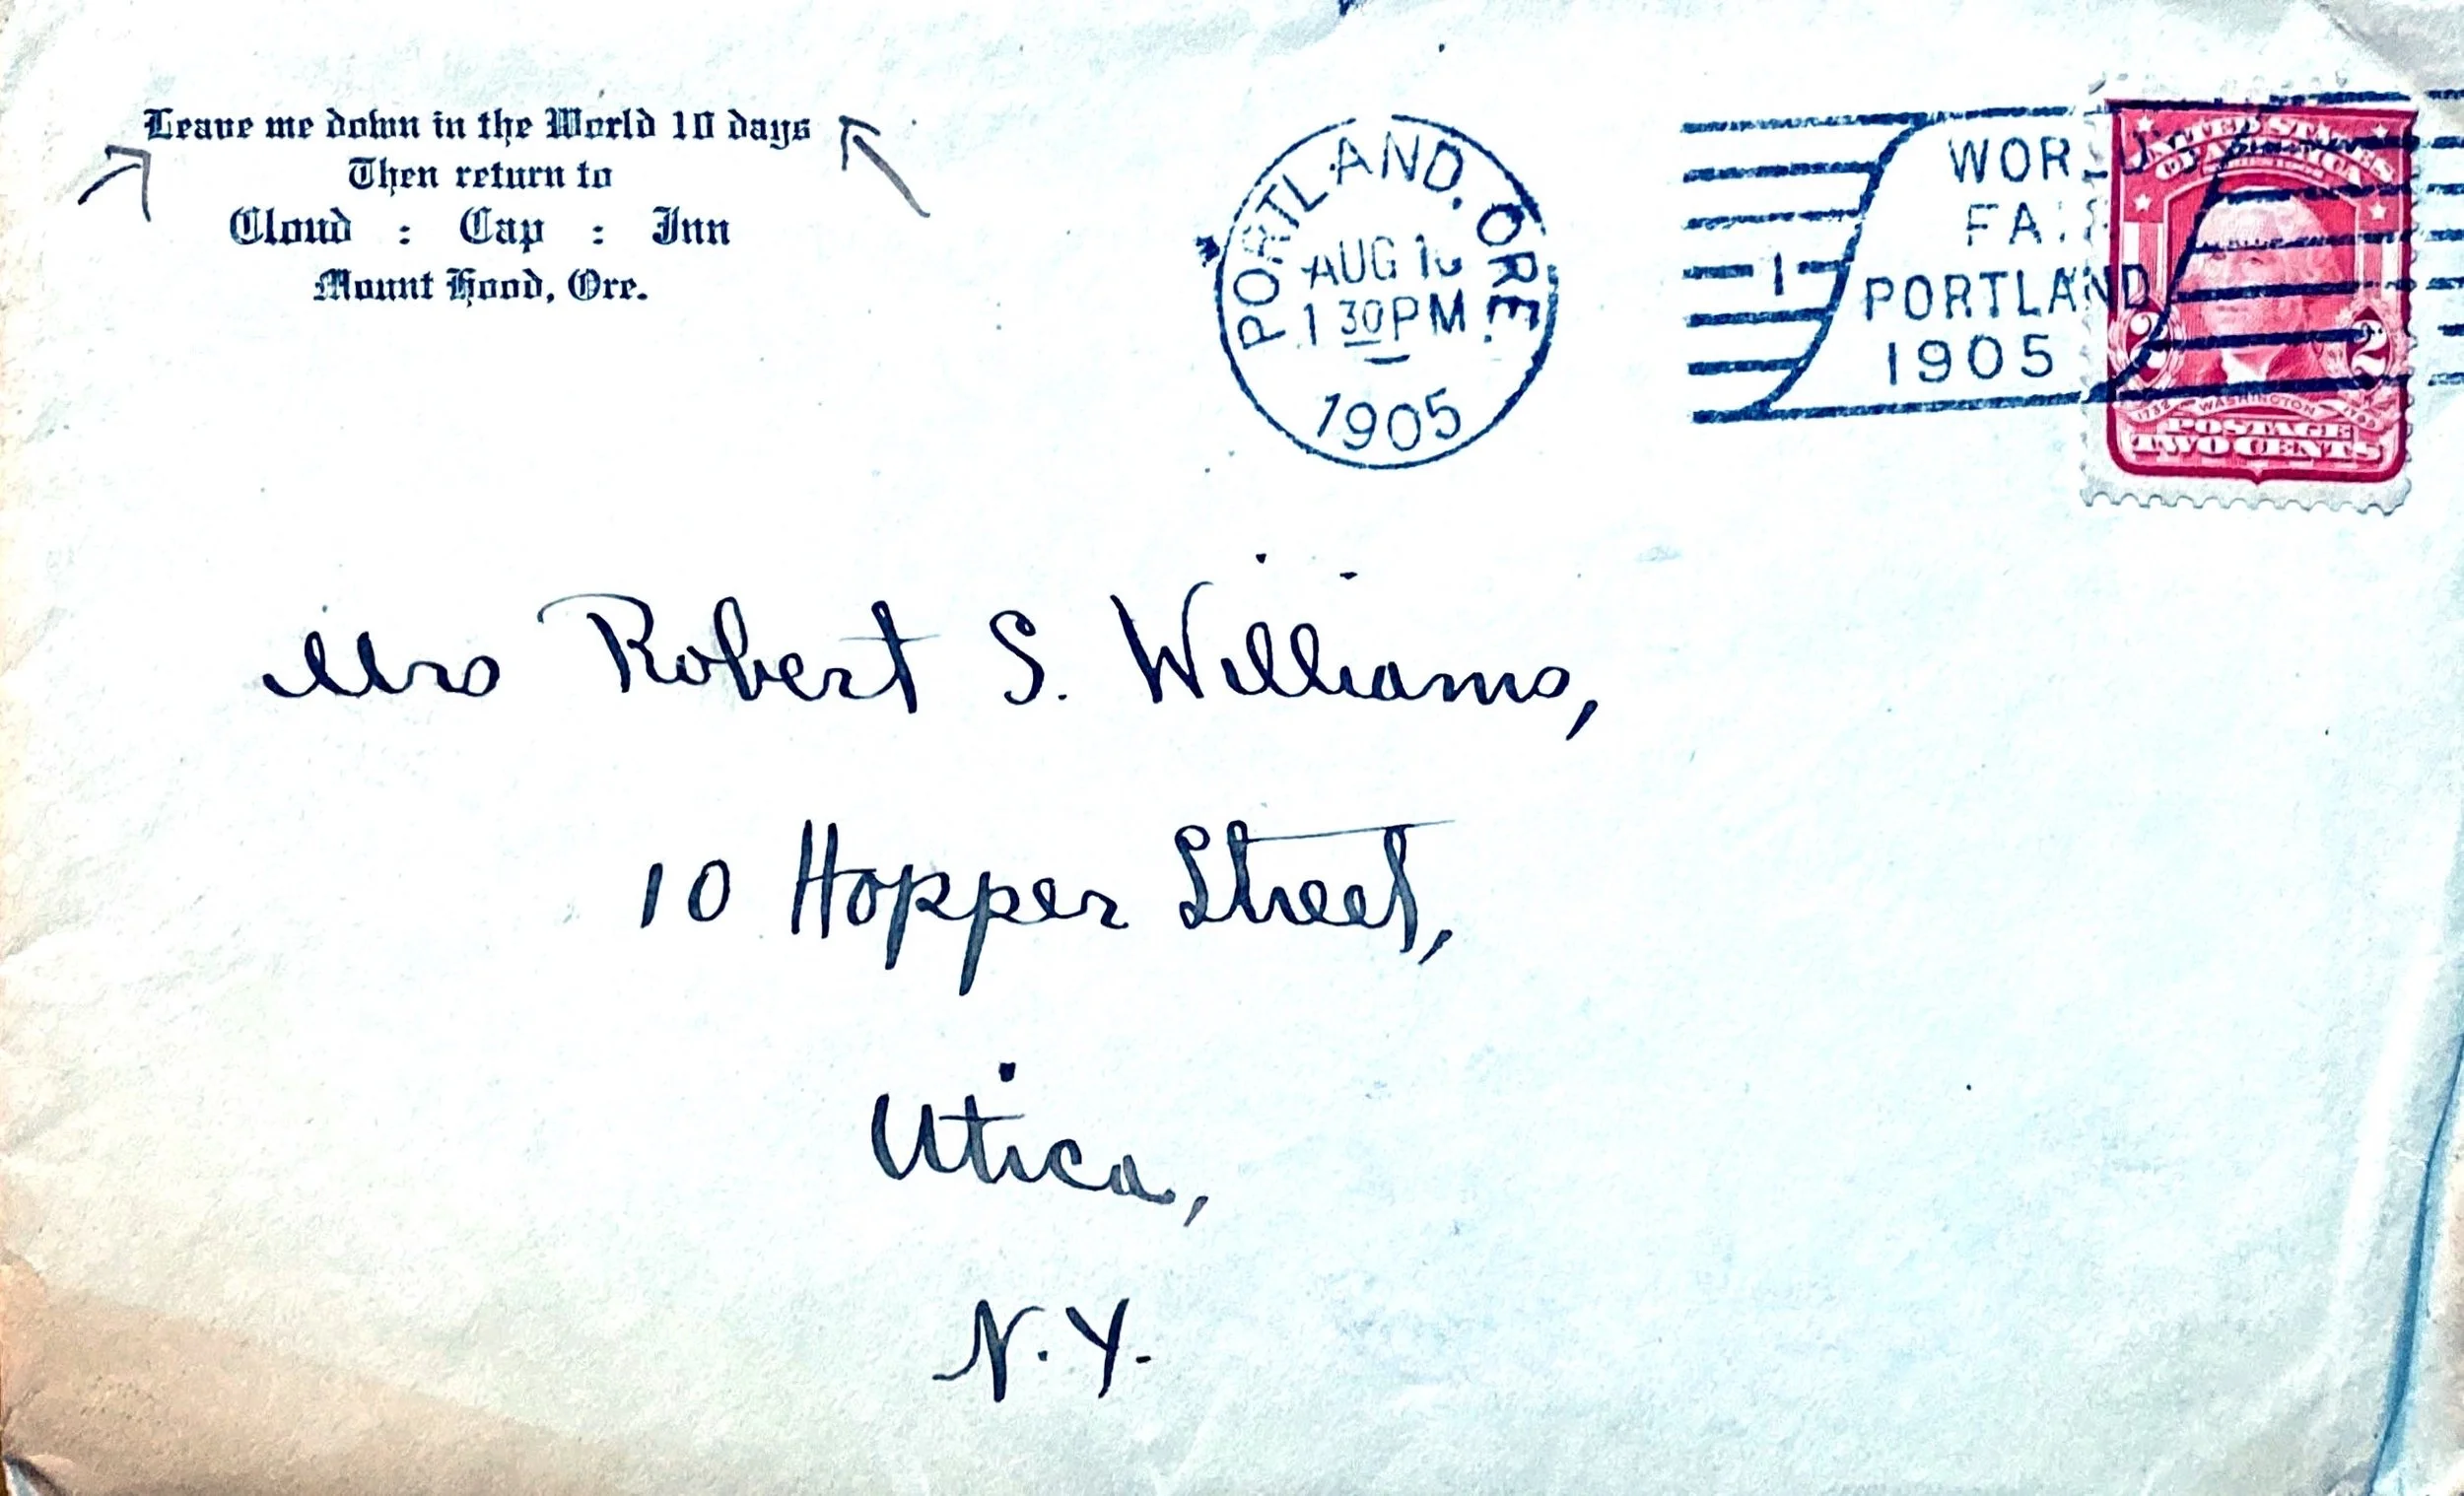 Leave me down in the World 10 days
Then return to
Cloud : Cap : Inn
Mount Hood, Ore.
PORTLAND, ORE.
AUG
1 30 PM
1905
1
WORLD'S
FAIR
PORTLAND
1905
UNITED STATES OF AMERICA
2 2
1732 WASHINGTON 1799
POSTAGE
TWO CENTS
Mrs Robert S. Williams,
10 Hopper Street,
Utica,
N.Y.